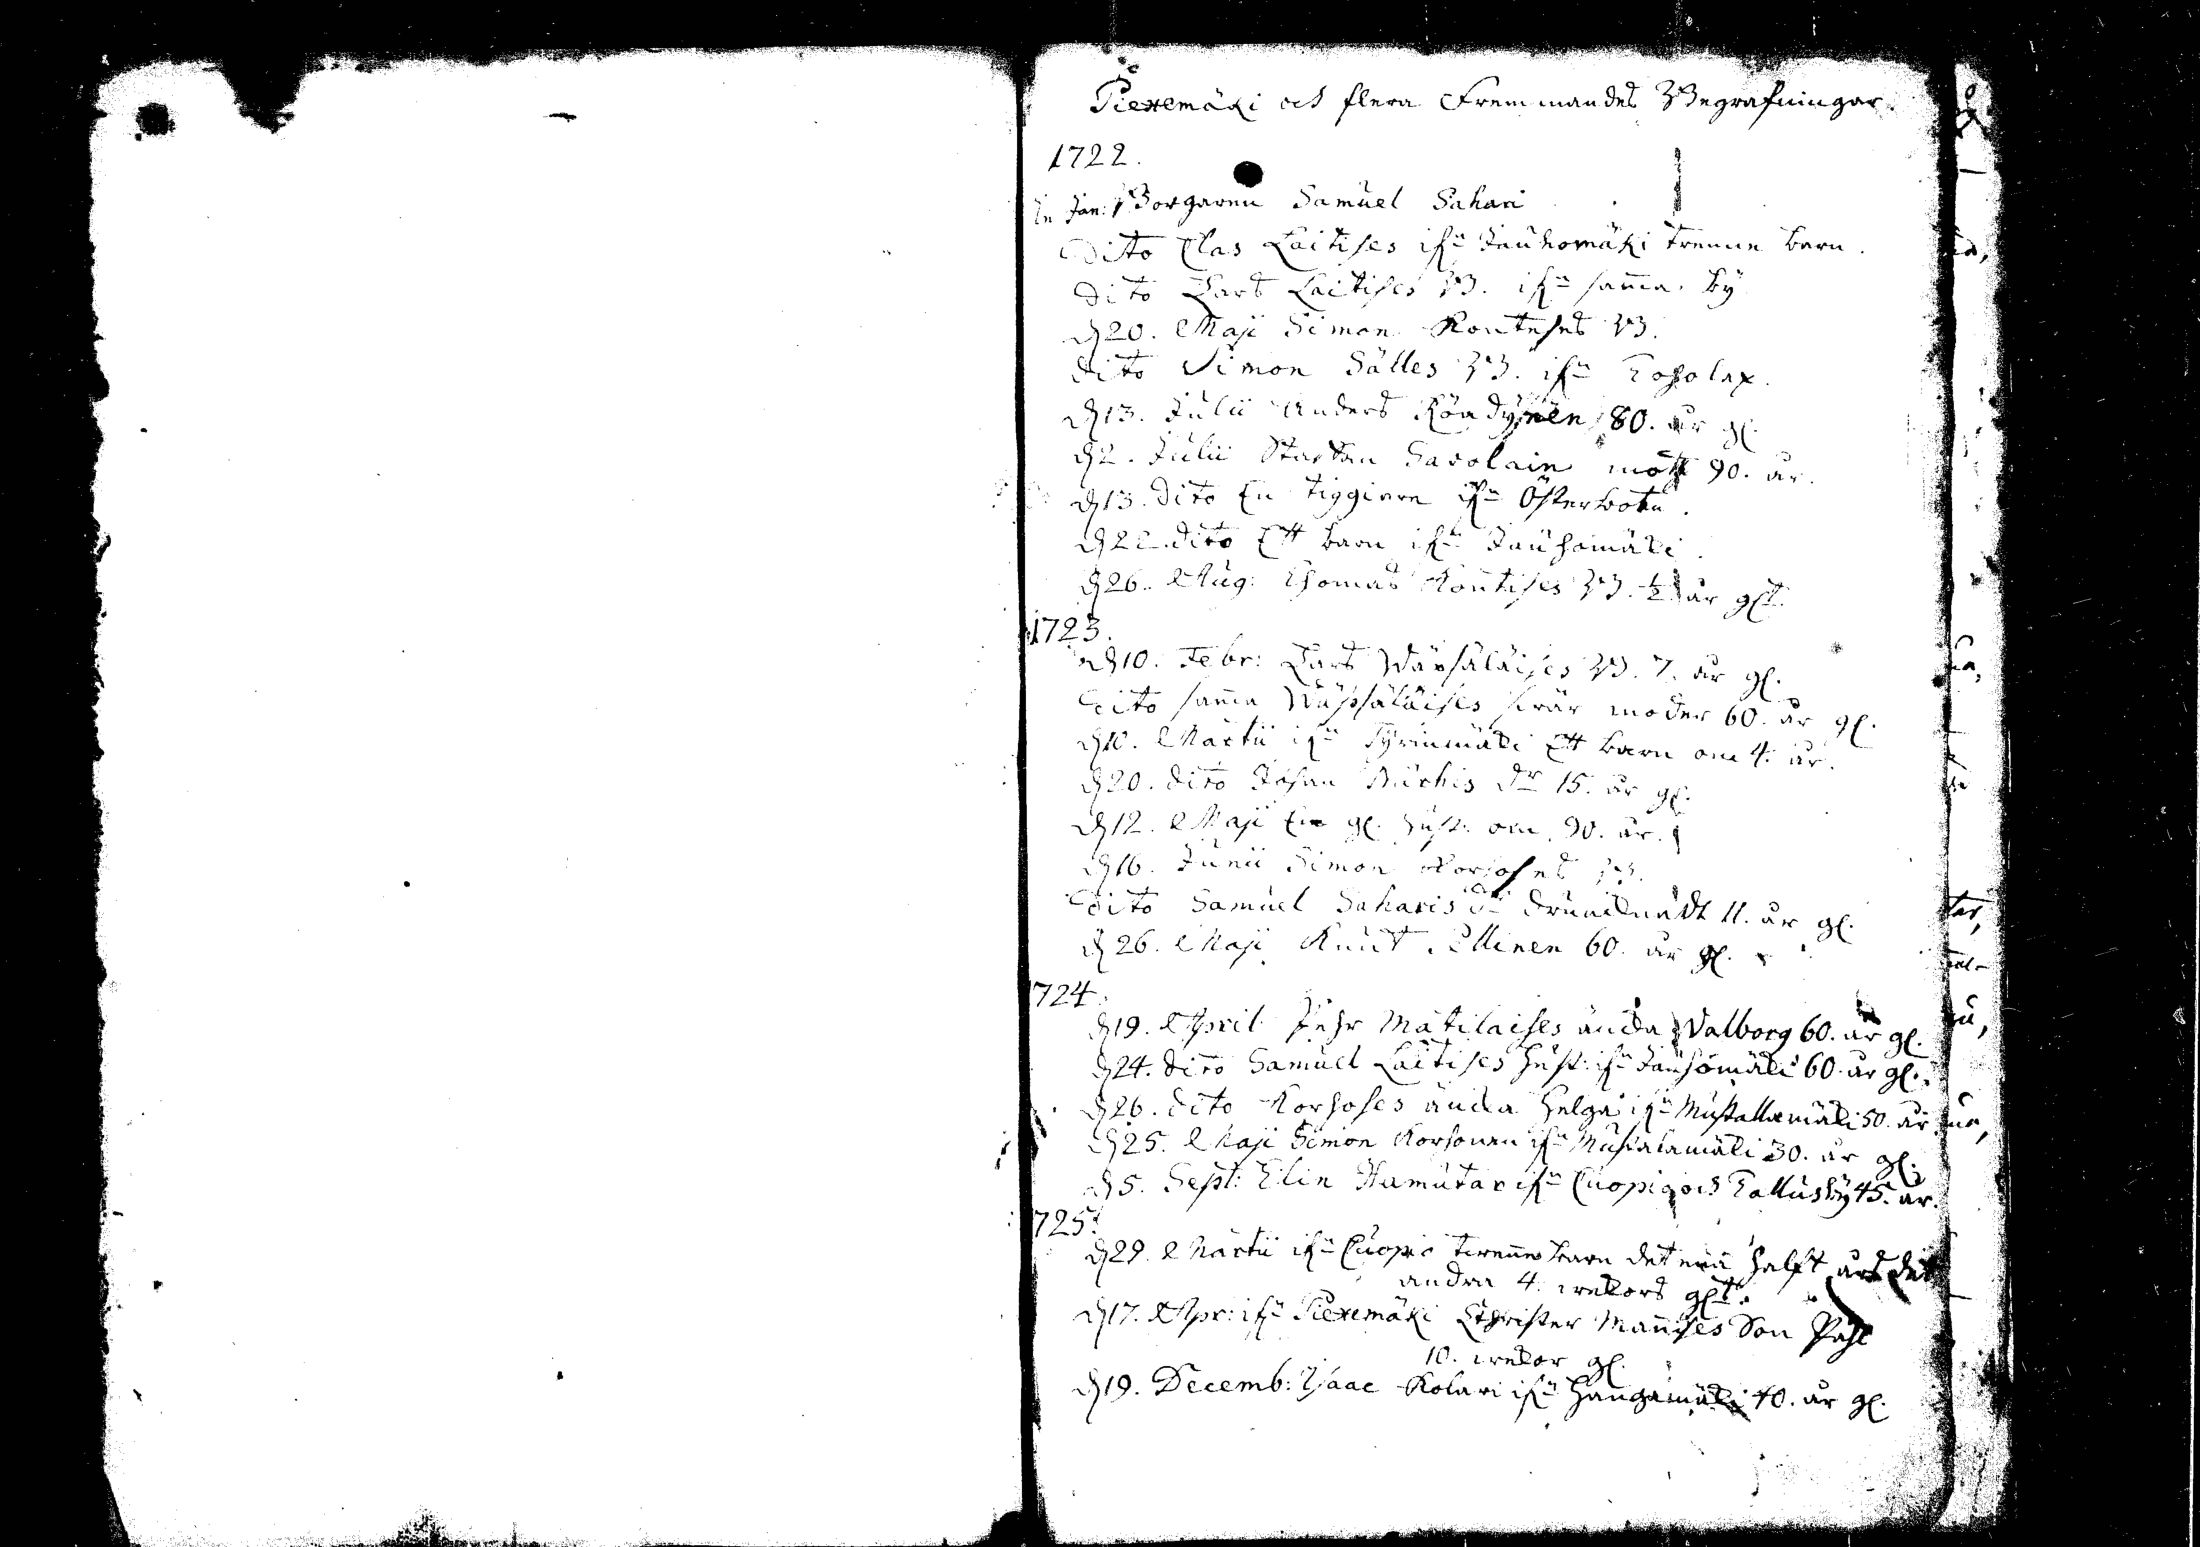 Piexemäki och flera Fremmandes Begrafningar.
1722.
In Jan: Borgaren Samuel Sahari
Dito Clas Laitises ifn Jauhomäki trenne barn.
Dito Lars Laitises B. ifn samma by
d 20. Maji Simon Kontises B.
dito Simon Sälles B. ifn
d 13. Julii Anders 80. år gl.
d 2. Julii Staffan Savolain mott 90. år.
d 13. Dito En tiggiare ifn Österbotn.
d 22. dito Ett barn ifn Jauhomäki.
d 26. Aug: Thomas Kontises B. ½ år glt.
1723.
d 10. Febr: Lars Wäisäläises B. 7. år gl.
Dito samma Wäisäläises swär moder 60. år gl.
d 10. Martii ifn Ett barn om 4. år.
d 20. dito Johan dr 15. år gl.
d 12. Maji En gl. hust. om 90. år.
d 16. Junii Simon Korhoses B.
Dito Samuel Saharis 11. år gl.
d 26. Maji Knut 60. år gl.
1724
d 19. April Pehr Matilaises änckia Valborg 60. år gl.
d 24. dito Samuel Laitises hust: ifn Jauhomäki 60. år gl.
d 26. dito Korhoses änckia Helga ifn Mustallamäki 50. år
d 25. Maji Simon Korhonen ifn Mustalamäki 30. år gl.
d 5. Sept: Elin Hamutar ifn Cuopio och Tallusby 45. år.
1725.
d 29. Martii ifn Cuopio twenne barn det ena halft års det
andra 4. wekors glt.
d 17. Apr: ifn Piexemäki Christer Mannises Son Påhl
10. wekor gl.
d 19. Decemb: Isaac Kolari ifn Hangamäki 40. år gl.